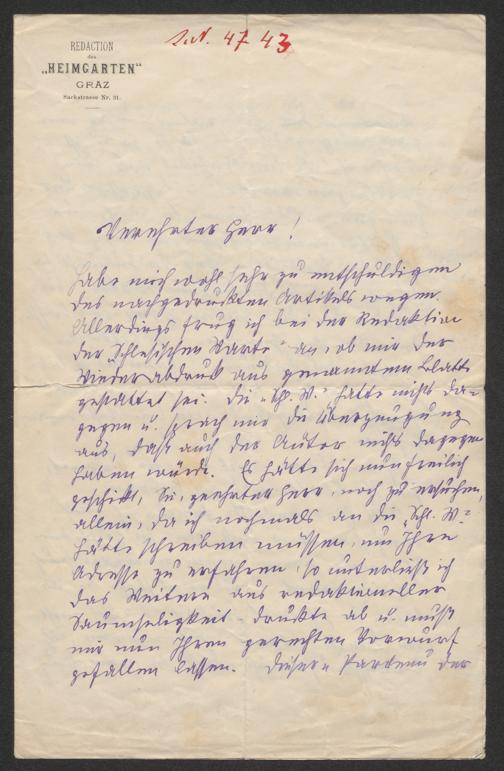 REDACTION
des
„HEIMGARTEN“
GRAZ
Sackstrasse Nr. 21.
I.N. 47 43
Verehrter Herr!
Habe mich wohl sehr zu entschuldigen
des nachgedruckten Artikels wegen.
Allerdings frug ich bei der Redaktion
der „Schlesischen Warte“ an, ob mir der
Wiederabdruck aus genanntem Blatte
gestattet sei. Die „Schl. W.“ hatte nichts da-
gegen u. sprach mir die Überzeugung
aus, daß auch der Autor nichts dagegen
haben würde. Es hätte sich nun freilich
geschickt, Sie, geehrter Herr, noch zu ersuchen,
allein, da ich nochmals an die „Schl. W.“
hätte schreiben müssen, um Ihre
Adresse zu erfahren, so unterließ ich
das Weitere aus redaktioneller
Saumseligkeit – druckte ab u. muß
mir nun Ihren gerechten Vorwurf
gefallen lassen. der